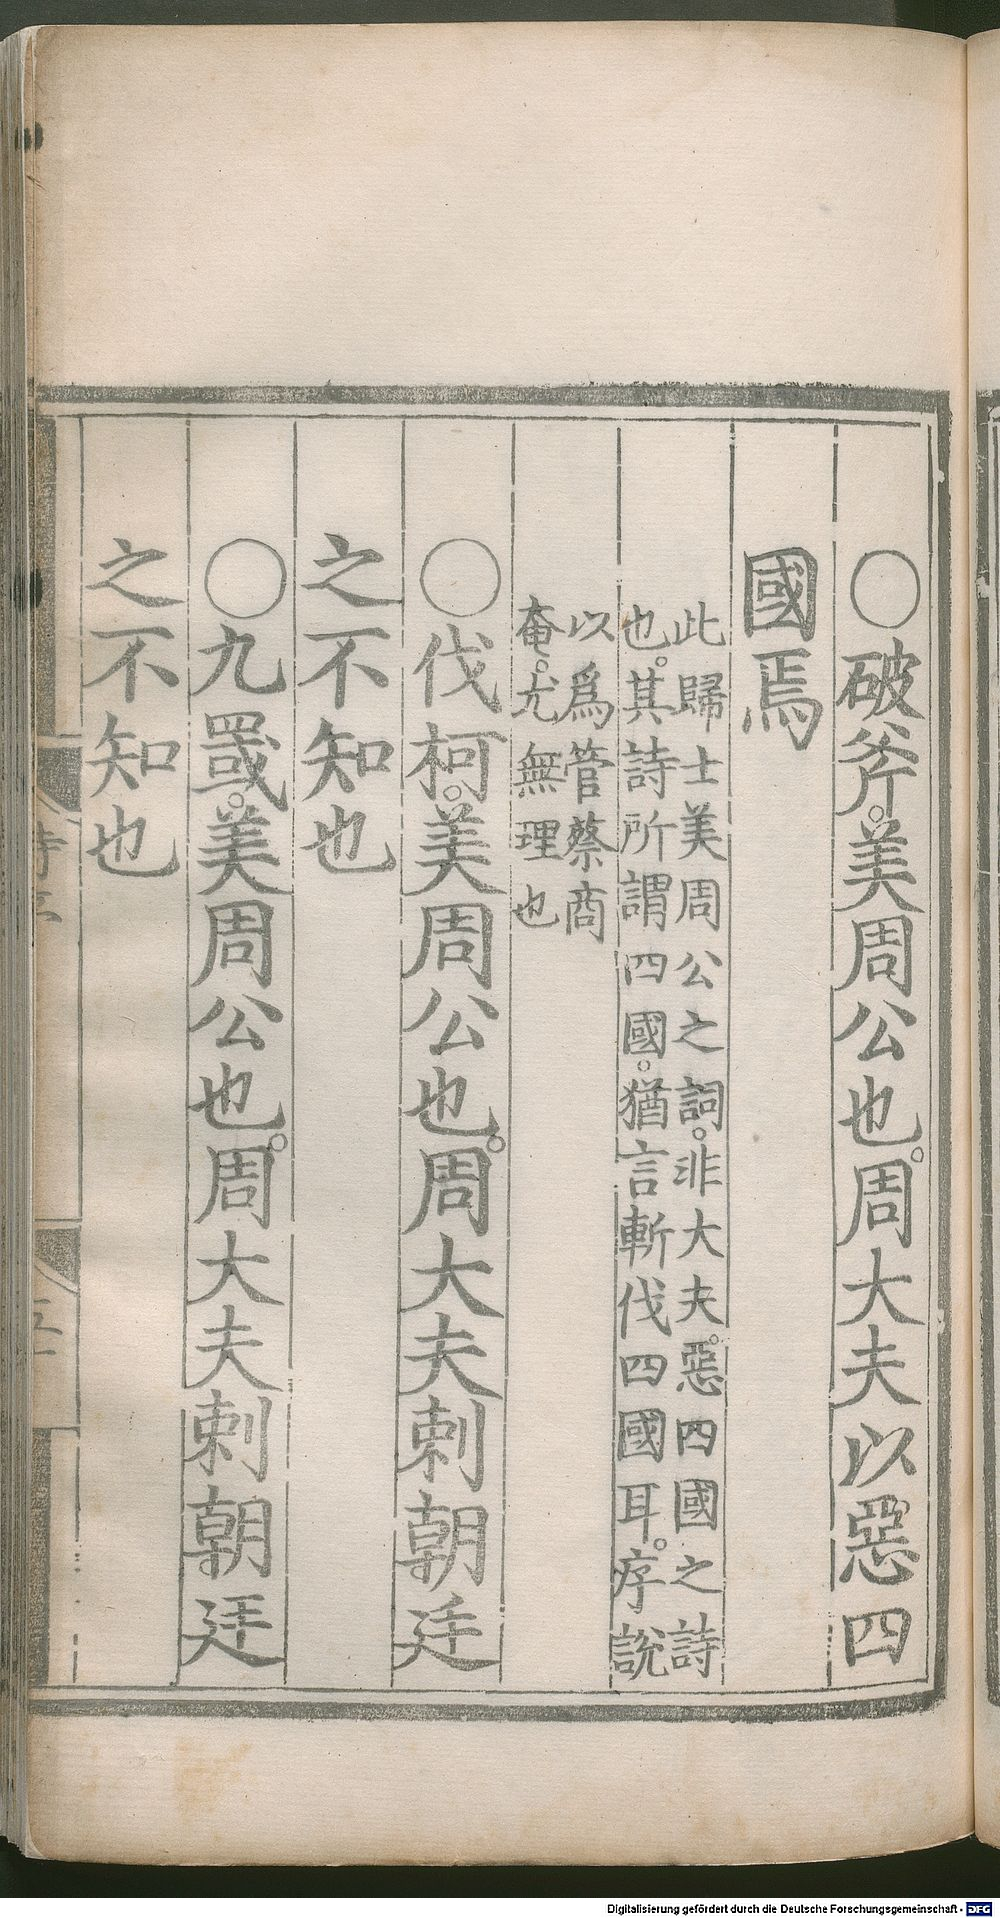 ○破斧。美周公也。周大夫以惡四
國焉
此歸士美周公之詞。非大夫。惡四國之詩
也。其詩所謂四國。猶言斬伐四國耳。序說
以爲管蔡商
奄。尤無理也
○伐柯。美周公也。周大夫刺朝廷
之不知也
○九罭。美周公也。周大夫刺朝廷
之不知也
Digitalisierung gefördert durch die Deutsche Forschungsgemeinschaft - DFG